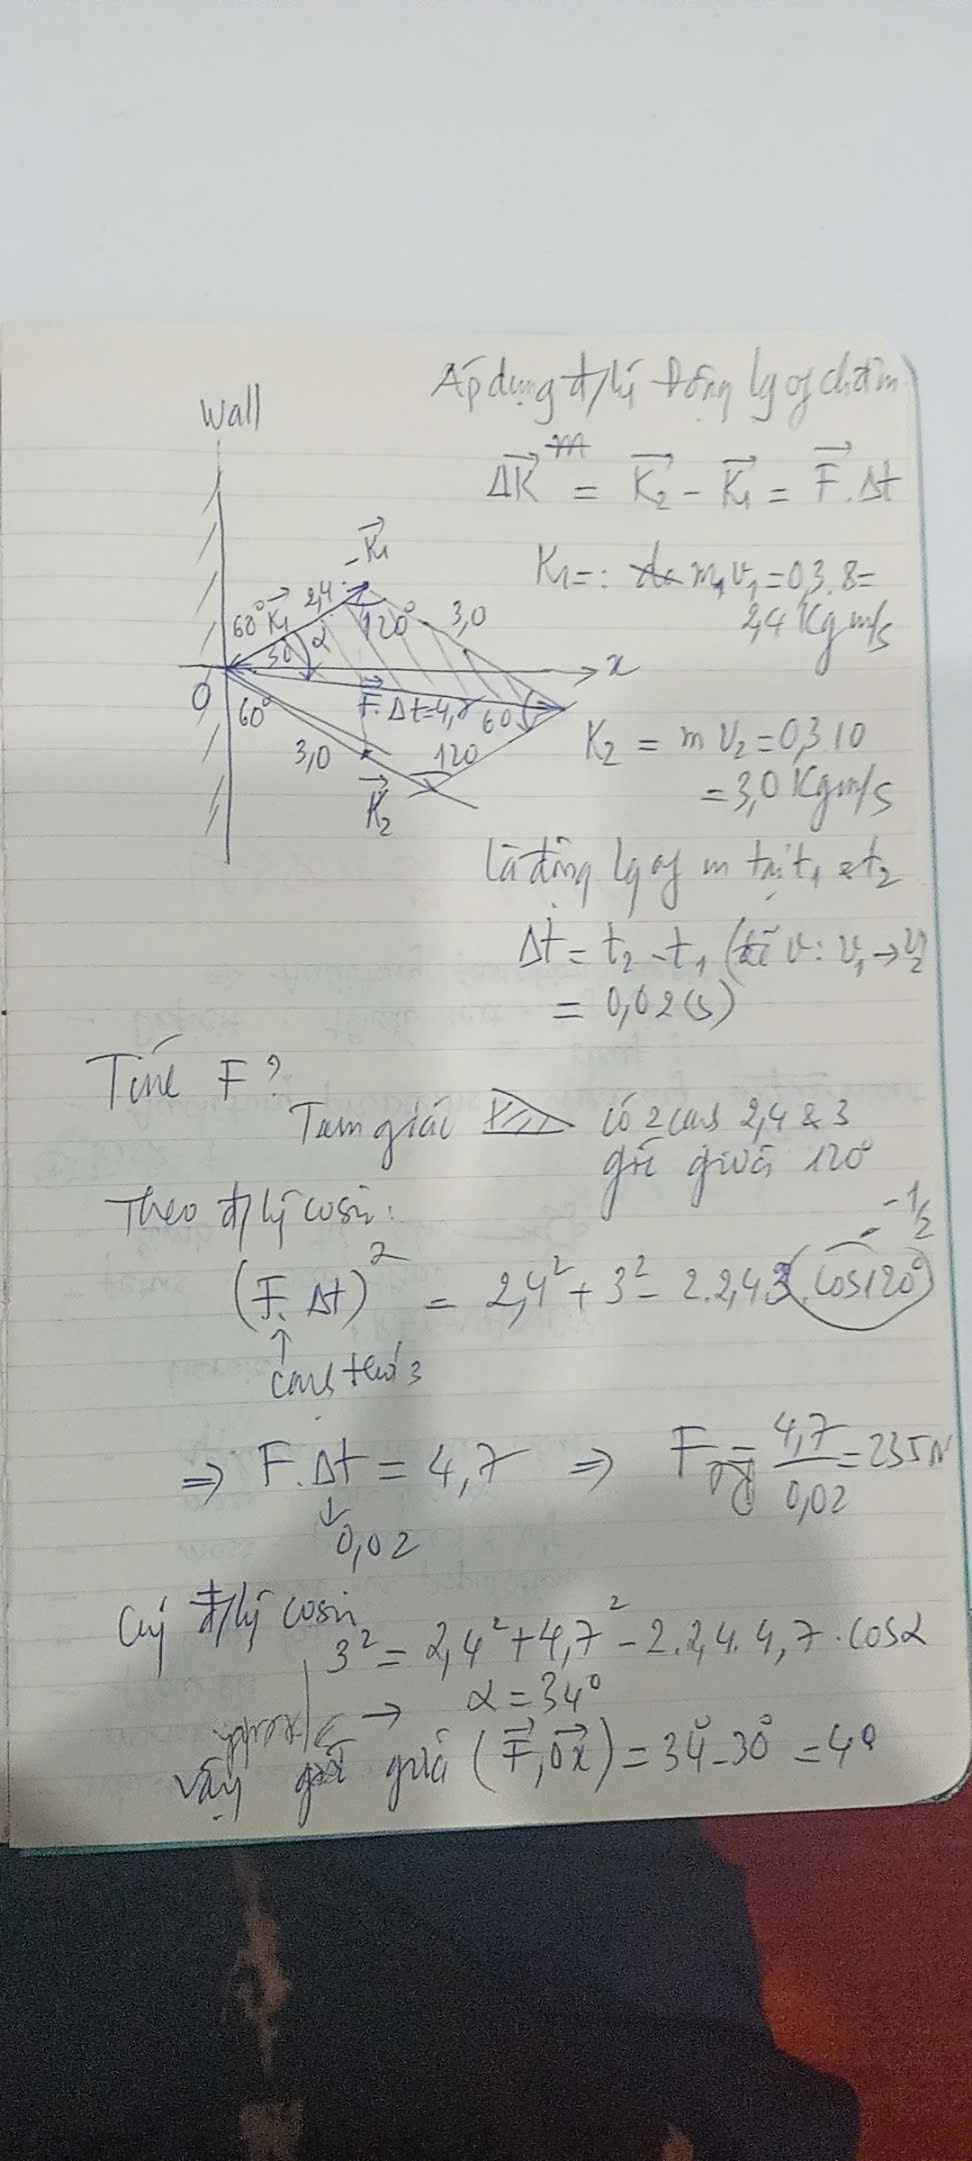 Áp dụng đ/lí động lg of chấm
Wall
ΔK⃗ = K⃗₂ - K⃗₁ = F⃗.Δt
-K⃗₁
K₁=: m₁v₁ = 0,3.8 =
2,4 Kgm/s
60° K⃗₁ 2,4 120° 3,0
30 α
x
O
60° F⃗.Δt=4,7 60
3,0 120
K⃗₂
K₂ = m v₂ = 0,3.10
= 3,0 Kgm/s
Là động lg of m tại t₁ & t₂
Δt = t₂ - t₁ (để v: v₁ → v₂)
= 0,02(s)
Tính F?
Tam giác có 2 cạnh 2,4 & 3
góc giữa 120°
Theo đ/lý cosin:
-1/2
(F.Δt)² = 2,4² + 3² - 2.2,4.3.cos120°
↑
cạnh thứ 3
⇒ F.Δt = 4,7 ⇒ F = 4,7/0,02 = 235N
↓
0,02
Cũng đ/lý cosin
3² = 2,4² + 4,7² - 2.2,4.4,7.cosα
→ α = 34°
approx
Vậy góc giữa (F⃗,Ox⃗) = 34° - 30° = 4°